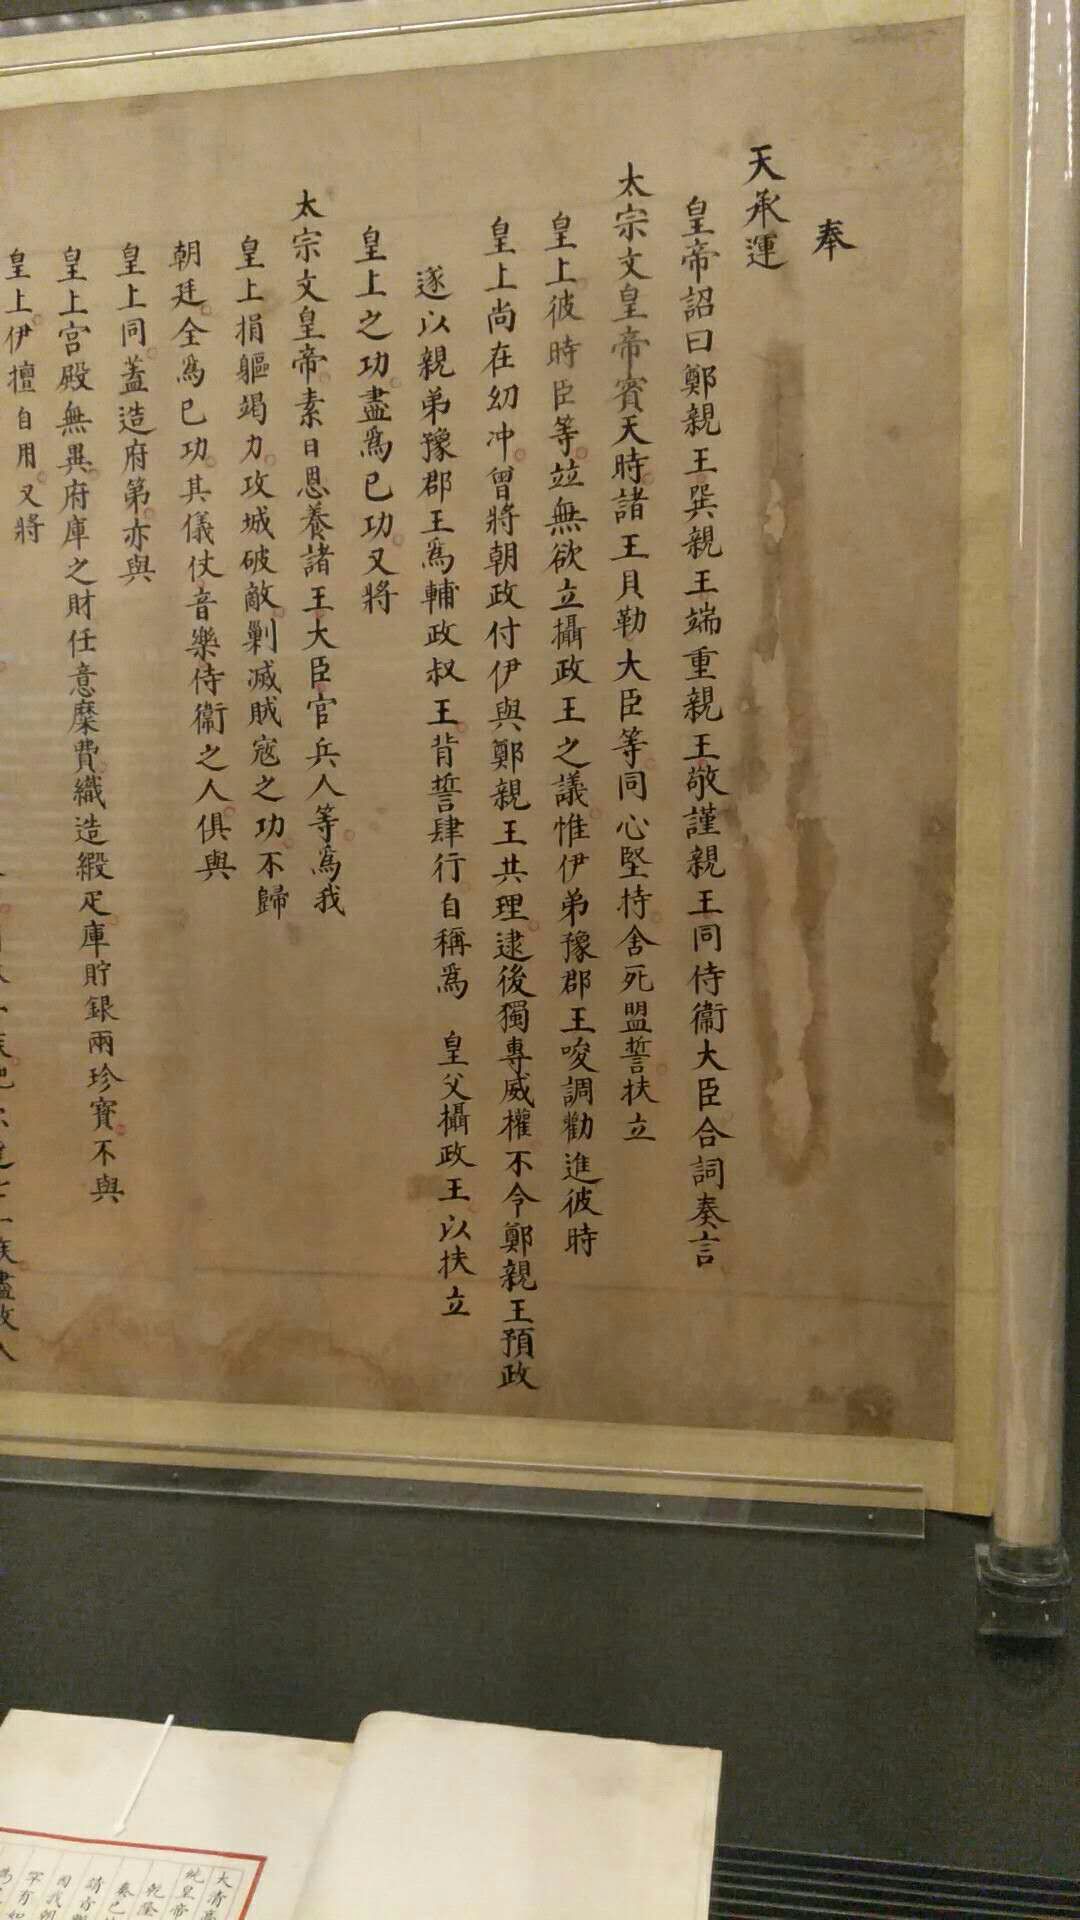 奉
天承運
皇帝詔曰鄭親王巽親王端重親王敬謹親王同侍衞大臣合詞奏言
太宗文皇帝賓天時諸王貝勒大臣等同心堅持舍死盟誓扶立
皇上彼時臣等並無欲立攝政王之議惟伊弟豫郡王唆調勸進彼時
皇上尚在幼冲曾將朝政付伊與鄭親王共理逮後獨專威權不令鄭親王預政
遂以親弟豫郡王爲輔政叔王背誓肆行自稱爲 皇父攝政王以扶立
皇上之功盡爲已功又將
太宗文皇帝素日恩養諸王大臣官兵人等爲我
皇上捐軀竭力攻城破敵剿滅賊寇之功不歸
朝廷全爲已功其儀仗音樂侍衞之人俱與
皇上同蓋造府第亦與
皇上宮殿無異府庫之財任意糜費織造緞疋庫貯銀兩珍寶不與
皇上伊擅自用又將
大清
純皇帝
乾隆